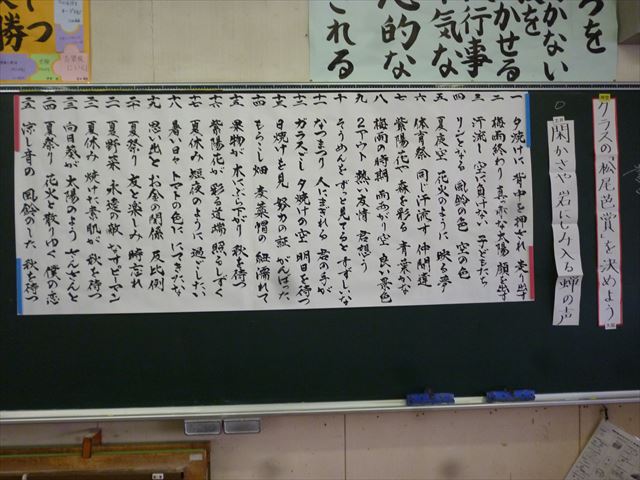 クラスの「松尾芭蕉賞」を決めよう
閑かさや 岩にしみ入る 蝉の声
一 夕焼けに 背中を押され 走り出す
二 梅雨終わり 真っ赤な太陽 顔を出す
三 汗流し 空に負けない 子どもたち
四 リンとなる 風鈴の色 空の色
五 夏夜空 花火のように 映る夢
六 体育祭 同じ汗流す 仲間達
七 紫陽花や 森を彩る 青葉かな
八 梅雨の時期 雨あがり空 良い景色
九 2アウト 熱い友情 君想う
十 そうめんを ずっと見てると すずしいな
十一 なつまつり 人にまぎれる 君の手が
十二 ガラスごし 夕焼けの空 明日を待つ
十三 日焼けを見 努力の証 がんばった
十四 もろこし畑 麦菜帽の 紐濡れて
十五 果物が 水にぷら下がり 秋を待つ
十六 紫陽花が 彩る道端 照らしずく
十七 夏休み 短夜のように 過ごしたい
十八 暑い日々 トマトの色に にてきたな
十九 思い出と お金の関係 反比例
二十 夏祭り 友と楽しみ 時忘れ
二一 夏野菜 永遠の敵 なすピーマン
二二 夏休み 焼けた素肌が 秋を待つ
二三 向日葵が 太陽のよう さんさんと
二四 夏祭り 花火と散りゆく 僕の恋
二五 涼し音の 風鈴のした 秋を待つ
つを
かない
を
かせる
行事
気な
的な
される